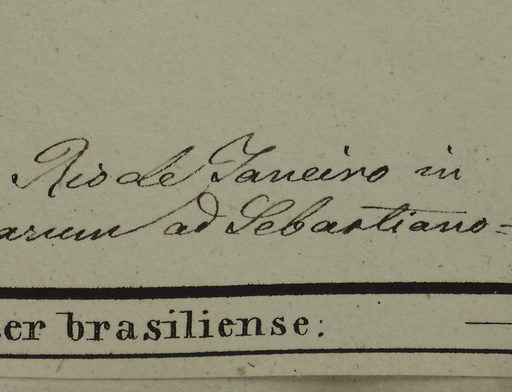 Rio de Janeiro in
arum ad Sebastiano=
er brasiliense: